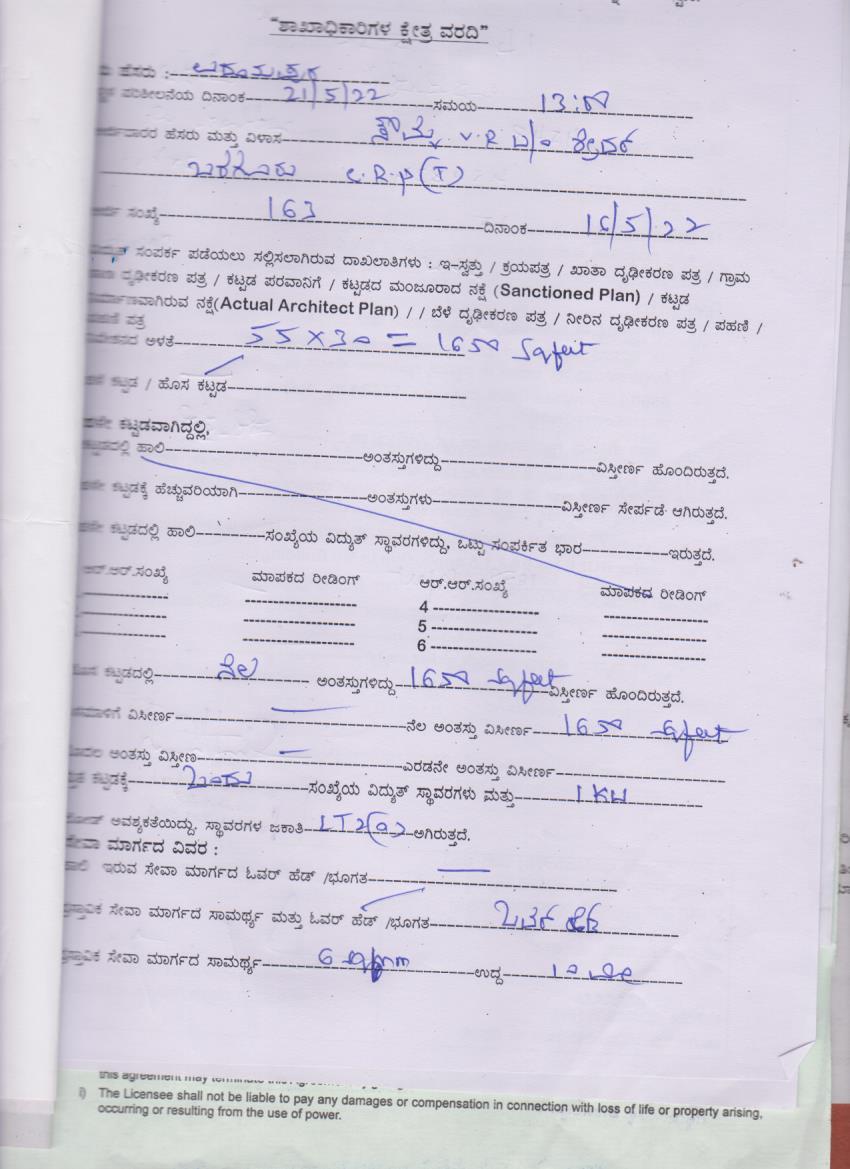 "ಶಾಖಾಧಿಕಾರಿಗಳ ಕ್ಷೇತ್ರ ವರದಿ"
ಹೆಸರು :
ಪರಿಶೀಲನೆಯ ದಿನಾಂಕ 21/5/22 ಸಮಯ 13:00
ಹೆಸರು ಮತ್ತು ವಿಳಾಸ V.R
ಬರಗೂರು
ಸಂಖ್ಯೆ 163 ದಿನಾಂಕ 16/5/22
ಸಂಪರ್ಕ ಪಡೆಯಲು ಸಲ್ಲಿಸಲಾಗಿರುವ ದಾಖಲಾತಿಗಳು : ಇ-ಸ್ವತ್ತು / ಕ್ರಯಪತ್ರ / ಖಾತಾ ದೃಢೀಕರಣ ಪತ್ರ / ಗ್ರಾಮ
ದೃಢೀಕರಣ ಪತ್ರ / ಕಟ್ಟಡ ಪರವಾನಿಗೆ / ಕಟ್ಟಡದ ಮಂಜೂರಾದ ನಕ್ಷೆ (Sanctioned Plan) / ಕಟ್ಟಡ
ನಿರ್ಮಾಣವಾಗಿರುವ ನಕ್ಷೆ(Actual Architect Plan) / / ಬೆಳೆ ದೃಢೀಕರಣ ಪತ್ರ / ನೀರಿನ ದೃಢೀಕರಣ ಪತ್ರ / ಪಹಣಿ /
ಪತ್ರ
ಅಳತೆ 55 X 30 = 1650 Sqfeet
ಕಟ್ಟಡ / ಹೊಸ ಕಟ್ಟಡ
ಕಟ್ಟಡವಾಗಿದ್ದಲ್ಲಿ,
ಹಾಲಿ ಅಂತಸ್ತುಗಳಿದ್ದು ವಿಸ್ತೀರ್ಣ ಹೊಂದಿರುತ್ತದೆ.
ಕಟ್ಟಡಕ್ಕೆ ಹೆಚ್ಚುವರಿಯಾಗಿ ಅಂತಸ್ತುಗಳು ವಿಸ್ತೀರ್ಣ ಸೇರ್ಪಡೆ ಆಗಿರುತ್ತದೆ.
ಕಟ್ಟಡದಲ್ಲಿ ಹಾಲಿ ಸಂಖ್ಯೆಯ ವಿದ್ಯುತ್ ಸ್ಥಾವರಗಳಿದ್ದು, ಒಟ್ಟು ಸಂಪರ್ಕಿತ ಭಾರ ಇರುತ್ತದೆ.
ಆರ್.ಆರ್.ಸಂಖ್ಯೆ ಮಾಪಕದ ರೀಡಿಂಗ್ ಆರ್.ಆರ್.ಸಂಖ್ಯೆ ಮಾಪಕದ ರೀಡಿಂಗ್
4
5
6
ಕಟ್ಟಡದಲ್ಲಿ ನೆಲ ಅಂತಸ್ತುಗಳಿದ್ದು 1650 Sqfeet ವಿಸ್ತೀರ್ಣ ಹೊಂದಿರುತ್ತದೆ.
ವಿಸೀರ್ಣ ನೆಲ ಅಂತಸ್ತು ವಿಸೀರ್ಣ 1650 Sqfeet
ಅಂತಸ್ತು ವಿಸ್ತೀಣ ಎರಡನೇ ಅಂತಸ್ತು ವಿಸೀರ್ಣ
ಕಟ್ಟಡಕ್ಕೆ ಒಂದು ಸಂಖ್ಯೆಯ ವಿದ್ಯುತ್ ಸ್ಥಾವರಗಳು ಮತ್ತು 1 KW
ಅವಶ್ಯಕತೆಯಿದ್ದು, ಸ್ಥಾವರಗಳ ಜಕಾತಿ LT2(a) ಆಗಿರುತ್ತದೆ.
ಸೇವಾ ಮಾರ್ಗದ ವಿವರ :
ಇರುವ ಸೇವಾ ಮಾರ್ಗದ ಓವರ್ ಹೆಡ್ /ಭೂಗತ
ಸೇವಾ ಮಾರ್ಗದ ಸಾಮರ್ಥ್ಯ ಮತ್ತು ಓವರ್ ಹೆಡ್ /ಭೂಗತ ಓವರ್ ಹೆಡ್
ಸೇವಾ ಮಾರ್ಗದ ಸಾಮರ್ಥ್ಯ 6 ಉದ್ದ 10
i) The Licensee shall not be liable to pay any damages or compensation in connection with loss of life or property arising,
occurring or resulting from the use of power.